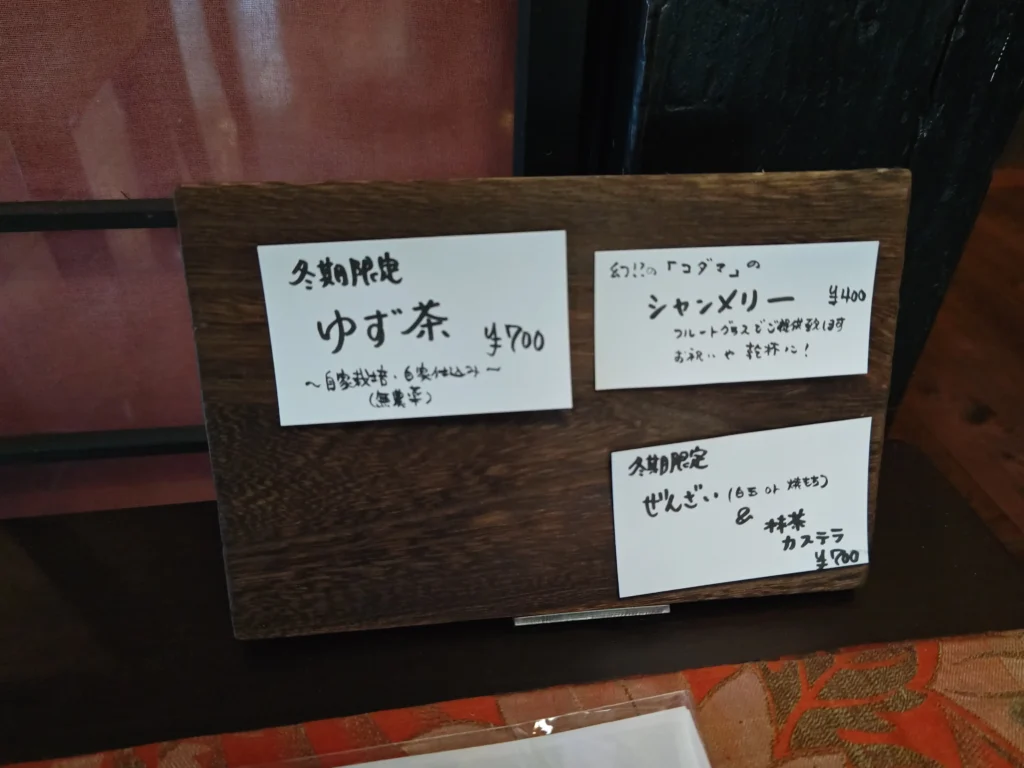 冬期限定
ゆず茶 ¥700
～自家栽培・自家仕込み～
(無農薬)
幻!?の「コダマ」の
シャンメリー ¥400
フルートグラスでご提供致します
お祝いや乾杯に!
冬期限定
ぜんざい(白玉 or 焼もち)
& 抹茶
カステラ
¥700